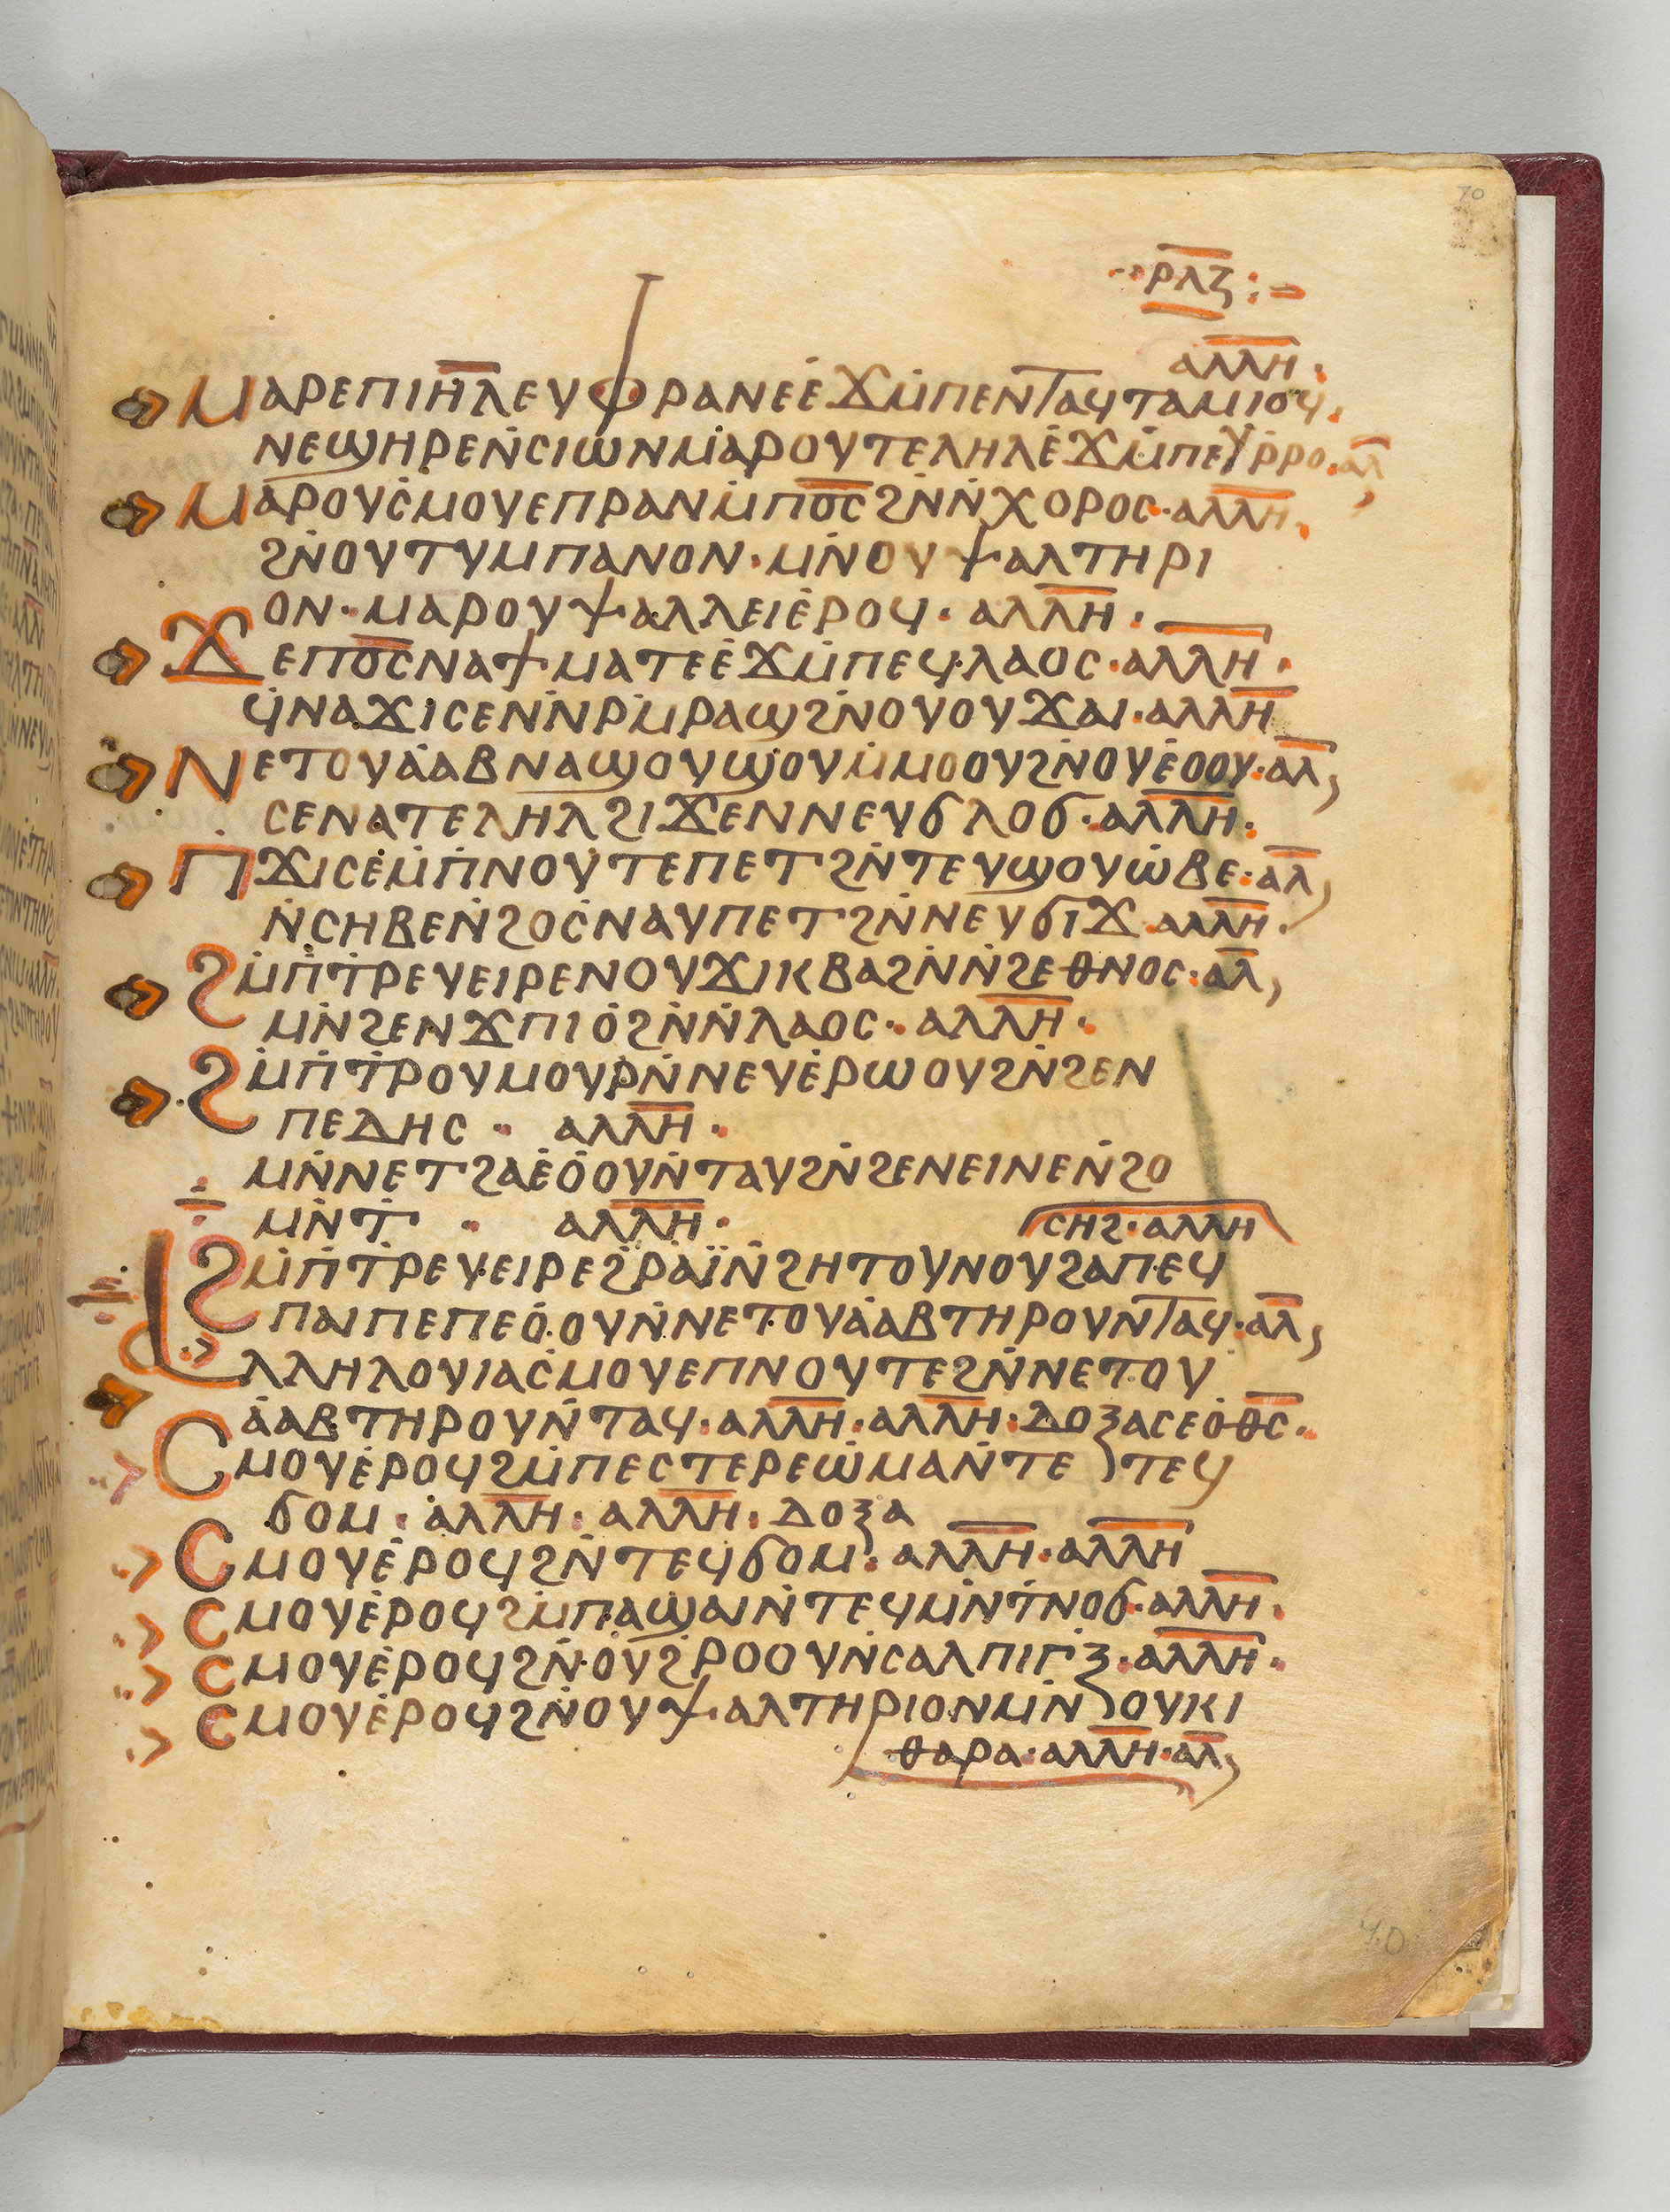 70
ⲣⲗⲍ
ⲁⲗⲗⲏ·
ⲙⲁⲣⲉⲡⲓⲏ̅ⲗ̅ⲉⲩⲫⲣⲁⲛⲉⲉ̇ϫⲙ̇ⲡⲉⲛⲧⲁϥⲧⲁⲙⲓⲟϥ·
ⲛⲉϣⲏⲣⲉⲛ̇ⲥⲓⲱⲛⲙⲁⲣⲟⲩⲧⲉⲗⲏⲗⲉ̇ϫⲙ̇ⲡⲉⲩⲣ̇ⲣⲟ·ⲁ̅ⲗ̅
ⲙⲁⲣⲟⲩⲥ̇ⲙⲟⲩⲉⲡⲣⲁⲛⲙ̇ⲡⲟ̅ⲥ̅ϩⲛ̇ⲛ̇ⲭⲟⲣⲟⲥ·ⲁⲗⲗⲏ·
ϩⲛ̇ⲟⲩⲧⲩⲙⲡⲁⲛⲟⲛ·ⲙⲛ̇ⲟⲩⲯⲁⲗⲧⲏⲣⲓ
ⲟⲛ·ⲙⲁⲣⲟⲩⲯⲁⲗⲗⲉⲓⲉ̇ⲣⲟϥ·ⲁⲗⲗⲏ·
ϫⲉⲡⲟ̅ⲥ̅ⲛⲁϯⲙⲁⲧⲉⲉ̇ϫⲙ̇ⲡⲉϥⲗⲁⲟⲥ·ⲁⲗⲗⲏ·
ϥ̇ⲛⲁϫⲓⲥⲉⲛ̇ⲛ̇ⲣⲙ̇ⲣⲁϣϩⲛ̇ⲟⲩⲟⲩϫⲁⲓ·ⲁⲗⲗⲏ
ⲛⲉⲧⲟⲩⲁ̇ⲁⲃⲛⲁϣⲟⲩϣⲟⲩⲙ̇ⲙⲟⲟⲩϩⲛ̇ⲟⲩⲉ̇ⲟⲟⲩ·ⲁ̅ⲗ̅
ⲥⲉⲛⲁⲧⲉⲗⲏⲗϩⲓϫⲉⲛⲛⲉⲩϭⲗⲟϭ·ⲁⲗⲗⲏ·
ⲡϫⲓⲥⲉⲙ̇ⲡ̇ⲛⲟⲩⲧⲉⲡⲉⲧϩⲛ̇ⲧⲉⲩϣⲟⲩⲱ̇ⲃⲉ·ⲁ̅ⲗ̅
ⲛ̇ⲥⲏⲃⲉⲛ̇ϩⲟⲥ̇ⲛⲁⲩⲡⲉⲧϩⲛ̇ⲛⲉⲩϭⲓϫ·ⲁⲗⲗⲏ·
ϩⲙ̇ⲡ̇ⲧ̇ⲣⲉⲩⲉⲓⲣⲉⲛⲟⲩϫⲓⲕⲃⲁϩⲛ̇ⲛ̇ϩⲉⲑⲛⲟⲥ·ⲁ̅ⲗ̅
ⲙⲛ̇ϩⲉⲛϫⲡⲓⲟ̇ϩⲛ̇ⲛ̇ⲗⲁⲟⲥ·ⲁⲗⲗⲏ·
ϩⲙ̇ⲡ̇ⲧ̇ⲣⲟⲩⲙⲟⲩⲣⲛ̇ⲛⲉⲩⲉ̇ⲣⲱⲟⲩϩⲛ̇ϩⲉⲛ
ⲡⲉⲇⲏⲥ· ⲁⲗⲗⲏ·
ⲙⲛ̇ⲛⲉⲧϩⲁⲉ̇ⲟ̇ⲟⲩⲛ̇ⲧⲁⲩϩⲛ̇ϩⲉⲛⲉⲓⲛⲉⲛ̇ϩⲟ
ⲙⲛ̇ⲧ̇ · ⲁⲗⲗⲏ· ⲥⲏϩ·ⲁⲗⲗⲏ
ϩⲙ̇ⲡ̇ⲧ̇ⲣⲉⲩⲉⲓⲣⲉϩⲣⲁⲓ̈ⲛ̇ϩⲏⲧⲟⲩⲛⲟⲩϩⲁⲡⲉϥ
ⲡⲁⲓⲡⲉⲡⲉⲟ̇ⲟⲩⲛ̇ⲛⲉⲧⲟⲩⲁ̇ⲁⲃⲧⲏⲣⲟⲩⲛⲧⲁϥ·ⲁ̅ⲗ̅
ⲁⲗⲗⲏⲗⲟⲩⲓⲁⲥ̇ⲙⲟⲩⲉⲡⲛⲟⲩⲧⲉϩⲛ̇ⲛⲉⲧⲟⲩ
ⲁ̇ⲁⲃⲧⲏⲣⲟⲩⲛ̇ⲧⲁϥ·ⲁⲗⲗⲏ·ⲁⲗⲗⲏ·ⲇⲟⲝⲁⲥⲉⲟ̇ⲑ̅ⲥ̅·
ⲥⲙⲟⲩⲉ̇ⲣⲟϥϩⲙ̇ⲡⲉⲥⲧⲉⲣⲉⲱ̇ⲙⲁⲛ̇ⲧⲉ ⲧⲉϥ
ϭⲟⲙ·ⲁⲗⲗⲏ·ⲁⲗⲗⲏ·ⲇⲟⲝⲁ
ⲥⲙⲟⲩⲉ̇ⲣⲟϥϩⲛ̇ⲧⲉϥϭⲟⲙ·ⲁⲗⲗⲏ·ⲁⲗⲗⲏ
ⲥⲙⲟⲩⲉ̇ⲣⲟϥϩⲙ̇ⲡⲁϣⲁⲓⲛ̇ⲧⲉϥⲙⲛ̇ⲧ̇ⲛⲟϭ·ⲁⲗⲗⲏ·
ⲥⲙⲟⲩⲉ̇ⲣⲟϥϩⲛ̇ⲟⲩϩⲣⲟⲟⲩⲛ̇ⲥⲁⲗⲡⲓⲅⲝ·ⲁⲗⲗⲏ·
ⲥⲙⲟⲩⲉ̇ⲣⲟϥϩⲛ̇ⲟⲩⲯⲁⲗⲧⲏⲣⲓⲟⲛⲙⲛ̇ⲟⲩⲕⲓ
ⲑⲁⲣⲁ·ⲁⲗⲗⲏ·ⲁ̅ⲗ̅